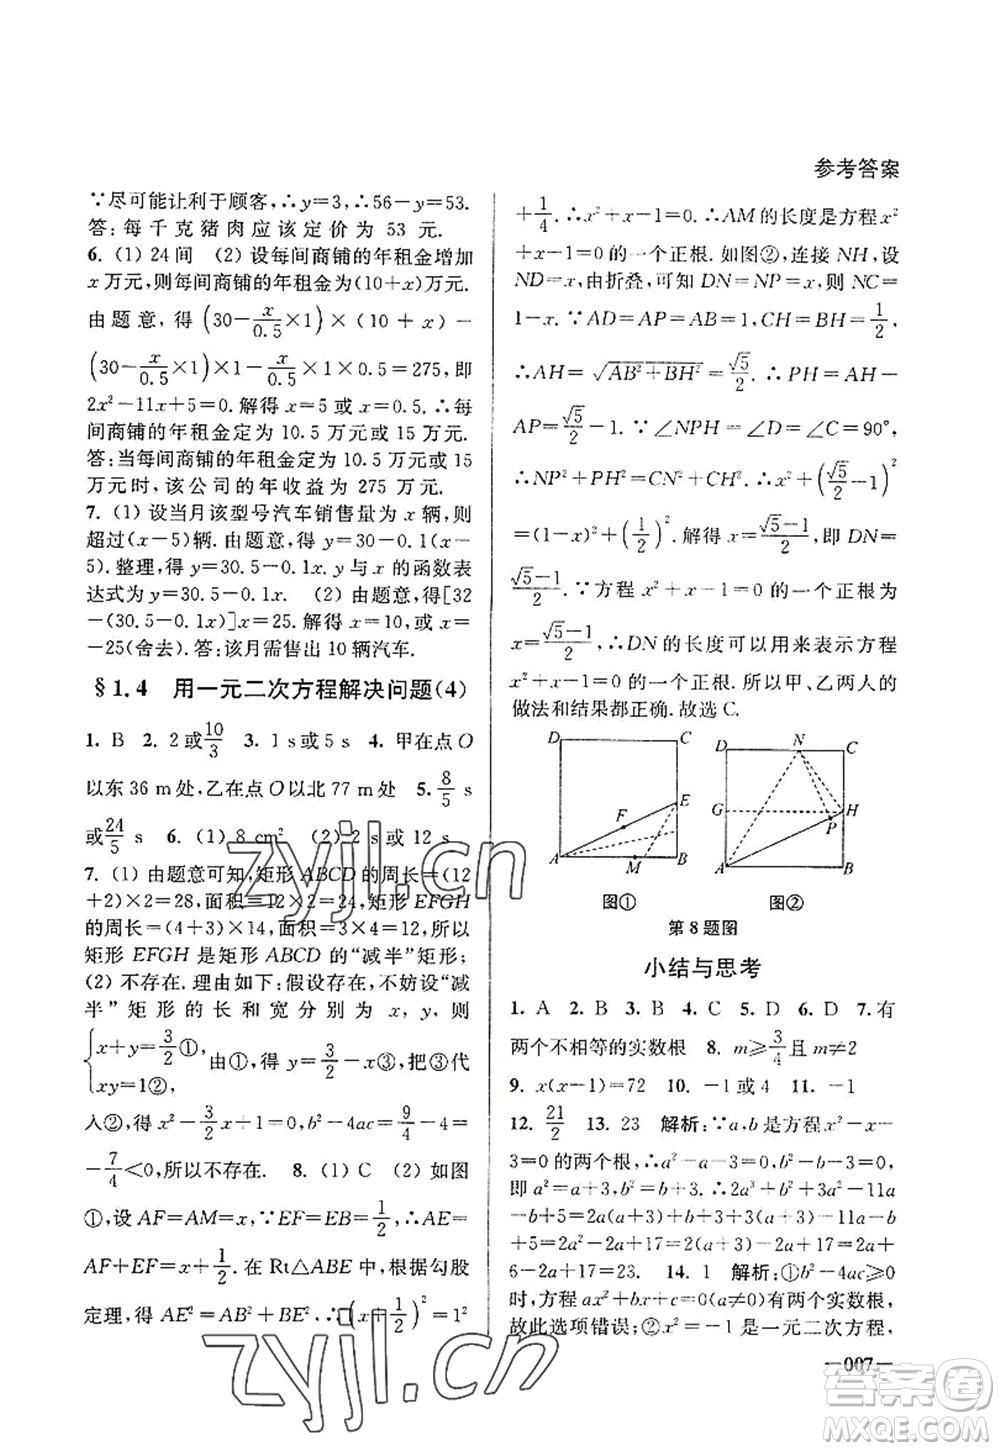 参考答案
∵尽可能让利于顾客,∴y=3,∴56-y=53.
答:每千克猪肉应该定价为 53 元.
6. (1) 24间 (2) 设每间商铺的年租金增加
x 万元,则每间商铺的年租金为(10+x)万元.
由题意,得 (30-x/0.5×1)×(10+x)-
(30-x/0.5×1)×1-x/0.5×0.5=275,即
2x²-11x+5=0. 解得 x=5 或 x=0.5. ∴每
间商铺的年租金定为 10.5 万元或 15 万元.
答:当每间商铺的年租金定为 10.5 万元或 15
万元时,该公司的年收益为 275 万元.
7. (1) 设当月该型号汽车销售量为 x 辆,则
超过(x-5)辆. 由题意,得 y=30-0.1(x-
5). 整理,得 y=30.5-0.1x. y 与 x 的函数表
达式为 y=30.5-0.1x. (2) 由题意,得[32
-(30.5-0.1x)]x=25. 解得 x=10 或 x=
-25(舍去). 答:该月需售出 10 辆汽车.
§1.4 用一元二次方程解决问题(4)
1. B 2. 2或10/3 3. 1 s或5 s 4. 甲在点 O
以东 36 m 处,乙在点 O 以北 77 m 处 5. 8/5 s
或24/5 s 6. (1) 8 cm² (2) 2 s 或 12 s
7. (1) 由题意可知,矩形 ABCD 的周长=(12
+2)×2=28,面积=12×2=24,矩形 EFGH
的周长=(4+3)×2=14,面积=4×3=12,所以
矩形 EFGH 是矩形 ABCD 的“减半”矩形;
(2) 不存在. 理由如下:假设存在,不妨设“减
半”矩形的长和宽分别为 x, y, 则
{x+y=3/2①, xy=1②, 由①,得 y=3/2-x③,把③代
入②,得 x²-3/2x+1=0, b²-4ac=9/4-4=
-7/4<0,所以不存在. 8. (1) C (2) 如图
①,设 AF=AM=x,∵EF=EB=1/2,∴AE=
AF+EF=x+1/2. 在 Rt△ABE 中,根据勾股
定理,得 AE²=AB²+BE²,∴(x+1/2)²=1²
+1/4. ∴x²+x-1=0. ∴AM 的长度是方程 x²
+x-1=0 的一个正根. 如图②,连接 NH,设
ND=x,由折叠,可知 DN=NP=x,则 NC=
1-x. ∵AD=AP=AB=1,CH=BH=1/2,
∴AH=√(AB²+BH²)=√5/2. ∴PH=AH-
AP=√5/2-1. ∵∠NPH=∠D=∠C=90°,
∴NP²+PH²=CN²+CH². ∴x²+(√5/2-1)²
=(1-x)²+(1/2)². 解得 x=(√5-1)/2. ∴DN=
(√5-1)/2. ∵方程 x²+x-1=0 的一个正根为
x=(√5-1)/2,∴DN 的长度可以用来表示方程
x²+x-1=0 的一个正根. 所以甲、乙两人的
做法和结果都正确. 故选 C.
D C E F A M B
D N C G H P A B
图① 图②
第 8 题图
小结与思考
1. A 2. B 3. B 4. C 5. D 6. D 7. 有
两个不相等的实数根 8. m≥3/4且 m≠2
9. x(x-1)=72 10. -1或 4 11. -1
12. 21/2 13. 23 解析:∵a,b 是方程 x²-x-
3=0 的两个根,∴a²-a-3=0,b²-b-3=0,
即 a²=a+3,b²=b+3,∴2a³+b²+3a²-11a
-b+5=2a(a+3)+b+3+3(a+3)-11a-b
+5=2a²-2a+17=2(a+3)-2a+17=2a+
6-2a+17=23. 14. 1 解析:①b²-4ac≥0
时,方程 ax²+bx+c=0(a≠0)有两个实数根,
故此选项错误;②x²=-1 是一元二次方程,
—007—
zyjl.cn
zyjl.cn
答案圈
MXQE.COM